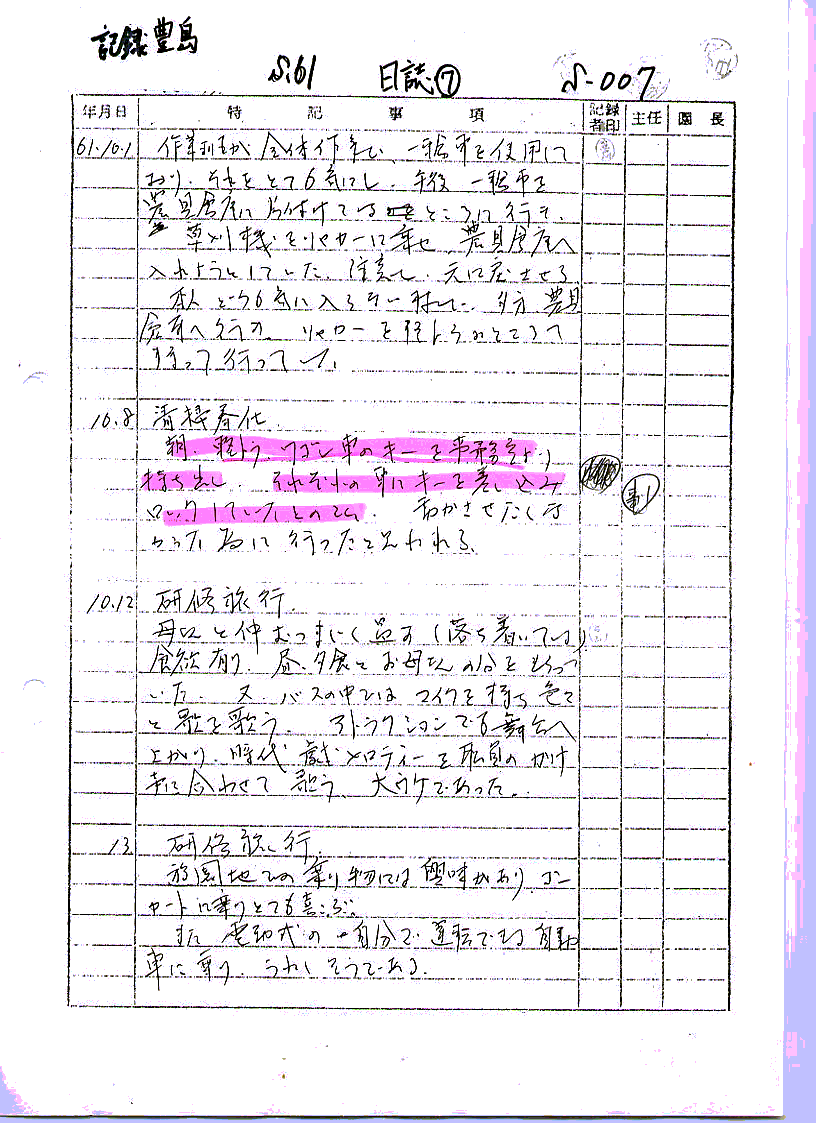 記録 豊島
S.61 日誌⑦ S-007
年月日 特記事項 記録者印 主任 園長
61.10.1 作業班が全体作業で、一輪車を使用して
おり、それをとても気にし、午後 一輪車を
農具倉庫に片付けてるところに行き、
草刈機をリヤカーに乗せ、農具倉庫へ
入れようとしていた。注意し、元に戻させる
本人 どうも気に入らない様で、夕方 農具
倉庫へ行き、リヤカーを軽トラのところへ
持って行っていた。
10.8 清掃奉仕
朝、軽トラ、ワゴン車のキーを事務室より
持ち出し、それぞれの車にキーを差し込み
ロックしていたとのこと。動かさせたくな
かった為に行ったと思われる。
10.12 研修旅行
母親と仲むつまじく過す（落ち着いている）
食欲有り、昼、夕食とお母さんの分ともらって
いた。又、バスの中ではマイクを持ち
と歌を歌う。アトラクションでも舞台へ
上がり、時代劇メロディーを職員のかけ
声に合わせて歌う、大ウケであった。
13 研修旅行
遊園地での乗り物には興味があり、ゴー
カートに乗りとても喜ぶ。
また 電動式の自分で運転できる自動
車に乗り、うれしそうである。